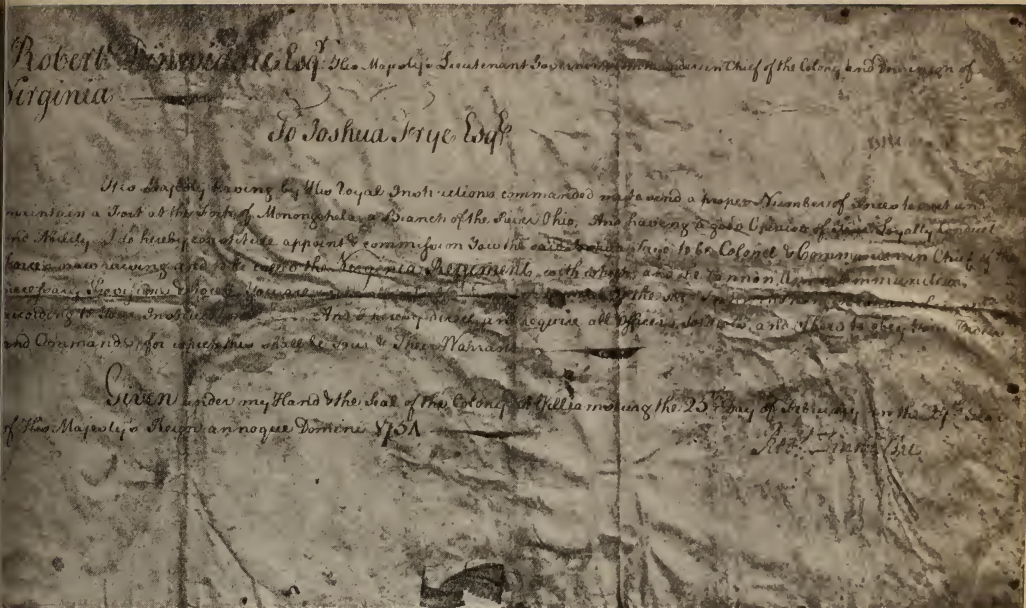 Robert Dinwiddie Esqr. His Majesty's Lieutenant Governor Commander in Chief of the Colony and Dominion of
Virginia
To Joshua Frye Esqr.
His Majesty having by His Royal Instructions commanded me to send a proper Number of Forces to erect and
maintain a Fort at the Fork of Monongehela a Branch of the River Ohio, And having a good Opinion of Your Loyalty Conduct
and Ability I do hereby constitute appoint & commission You the said Joshua Frye to be Colonel & Commander in Chief of the
Forces now raising and to be the Virginia Regiment with which and the Cannon Arms Ammunition
necessary Provisions & Stores You are the
according to Instructions And I hereby direct and require all Officers Soldiers and Others to obey
and Commander for which this shall be Your & Their Warrant
Given under my Hand & the Seal of the Colony at Williamsburg the 25th day of February in the Year
of His Majesty's Reign annoque Domini 1754
Robt. Dinwiddie